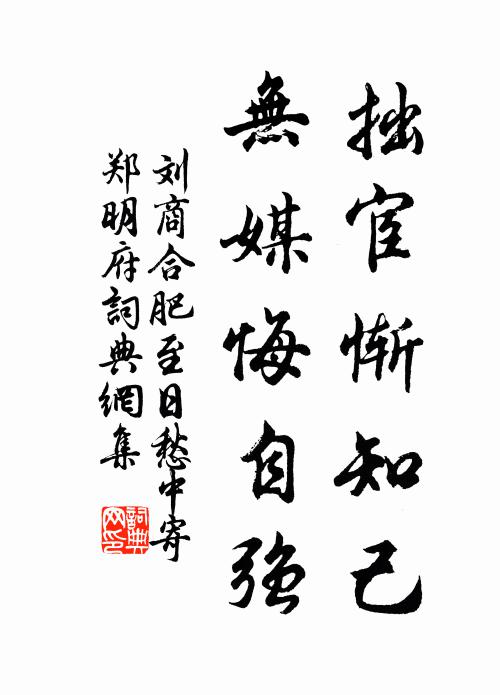 拙宦惭知己
無媒悔自強
刘商合肥至日愁中寄
郑明府詞典網集
詞典
网印